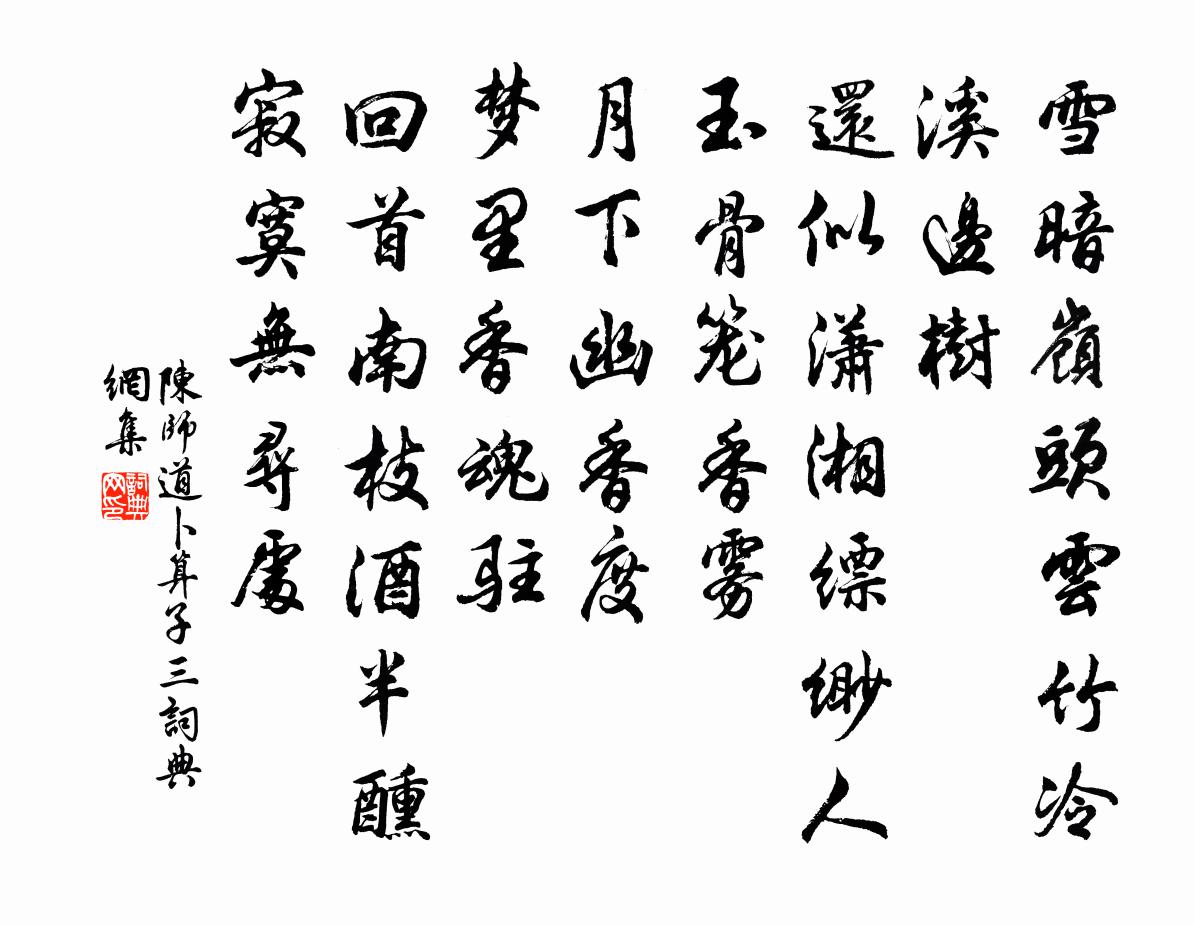 雪暗嶺頭雲竹冷
溪邊樹
還似瀟湘縹緲人
玉骨笼香雾
月下幽香度
梦里香魂駐
回首南枝酒半醺
寂寞無尋處
陳師道卜算子三詞典
網集
詞典
网印